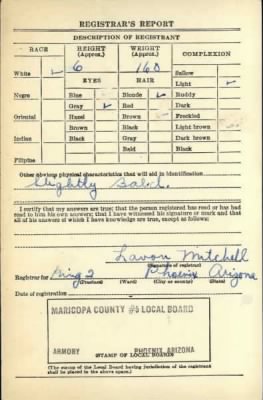 REGISTRAR'S REPORT
DESCRIPTION OF REGISTRANT
RACE HEIGHT (Approx.) WEIGHT (Approx.) COMPLEXION
6 160
White ✓ EYES HAIR Sallow
Light ✓
Negro Blue Blonde ✓ Ruddy
Gray ✓ Red Dark
Oriental Hazel Brown Freckled
Brown Black Light brown
Indian Black Gray Dark brown
Bald Black
Filipino
Other obvious physical characteristics that will aid in identification
Slightly Bald.
I certify that my answers are true; that the person registered has read or has had
read to him his own answers; that I have witnessed his signature or mark and that
all of his answers of which I have knowledge are true, except as follows:
Lavon Mitchell
(Signature of registrar)
Registrar for 2 Phoenix Arizona
(Precinct) (Ward) (City or county) (State)
Date of registration
MARICOPA COUNTY #5 LOCAL BOARD
ARMORY PHOENIX, ARIZONA
STAMP OF LOCAL BOARD
(The stamp of the Local Board having jurisdiction of the registrant
shall be placed in the above space.)